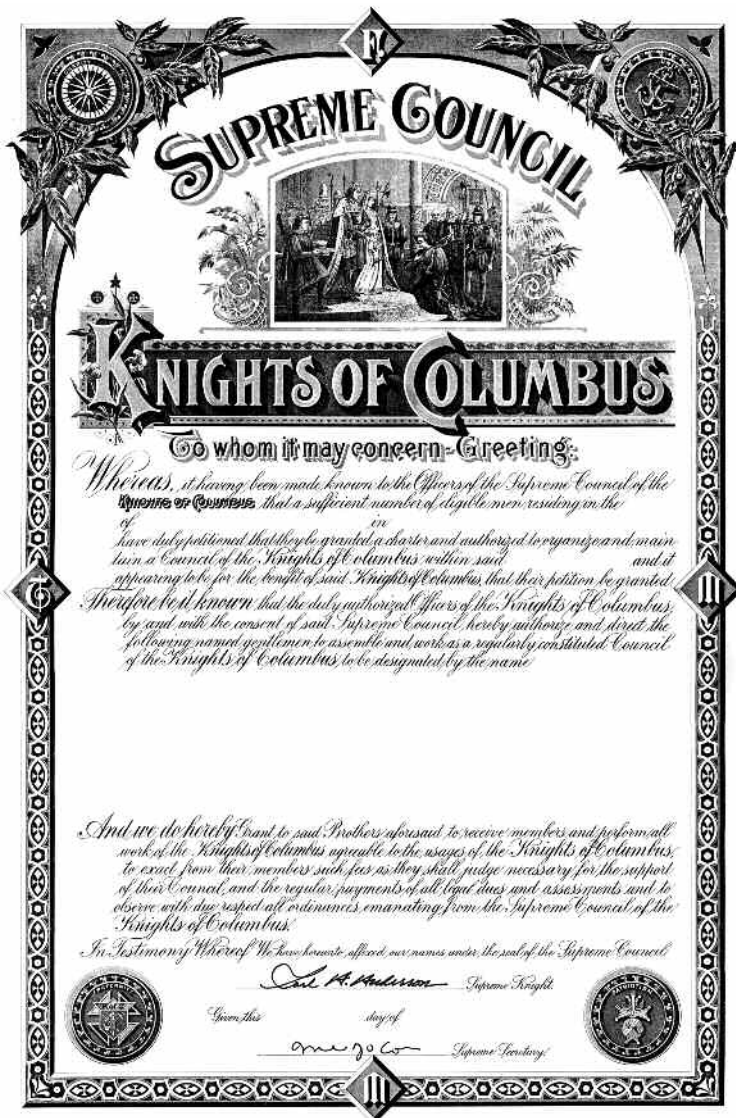 F.
SUPREME COUNCIL
KNIGHTS OF COLUMBUS
To whom it may concern - Greeting:
Whereas, it having been made known to the Officers of the Supreme Council of the
KNIGHTS OF COLUMBUS that a sufficient number of eligible men residing in the
of in
have duly petitioned that they be granted a charter and authorized to organize and main
tain a Council of the Knights of Columbus within said and it
appearing to be for the benefit of said Knights of Columbus, that their petition be granted
Therefore be it known that the duly authorized Officers of the Knights of Columbus,
by and with the consent of said Supreme Council, hereby authorize and direct the
following named gentlemen to assemble and work as a regularly constituted Council
of the Knights of Columbus, to be designated by the name
And we do hereby Grant, to said Brothers aforesaid to receive members and perform all
work of the Knights of Columbus agreeable to the usages of the Knights of Columbus,
to exact from their members such fees as they shall judge necessary for the support
of their Council, and the regular payments of all legal dues and assessments and to
observe with due respect all ordinances, emanating from the Supreme Council of the
Knights of Columbus.
In Testimony Whereof We have hereunto affixed our names under the seal of the Supreme Council
Carl A. Anderson Supreme Knight
Given this day of
Supreme Secretary